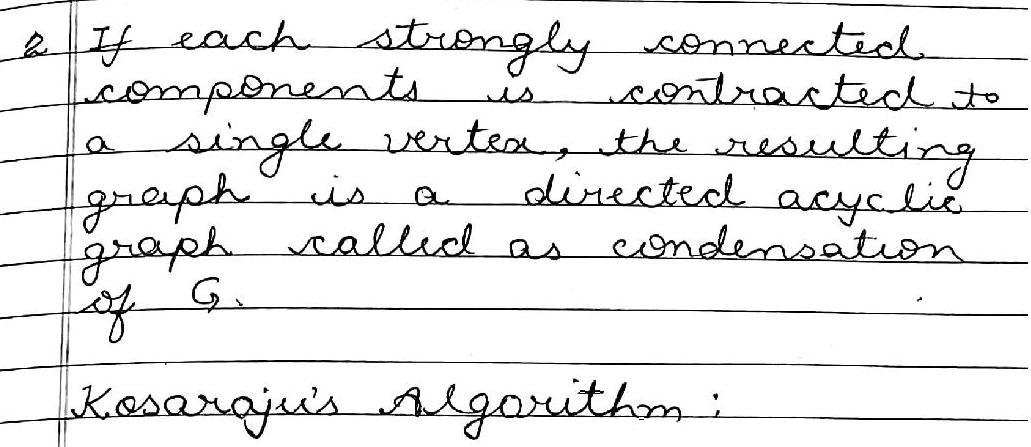 2 If each strongly connected
components is contracted to
a single vertex, the resulting
graph is a directed acyclic
graph called as condensation
of G.
Kosaraju's Algorithm :